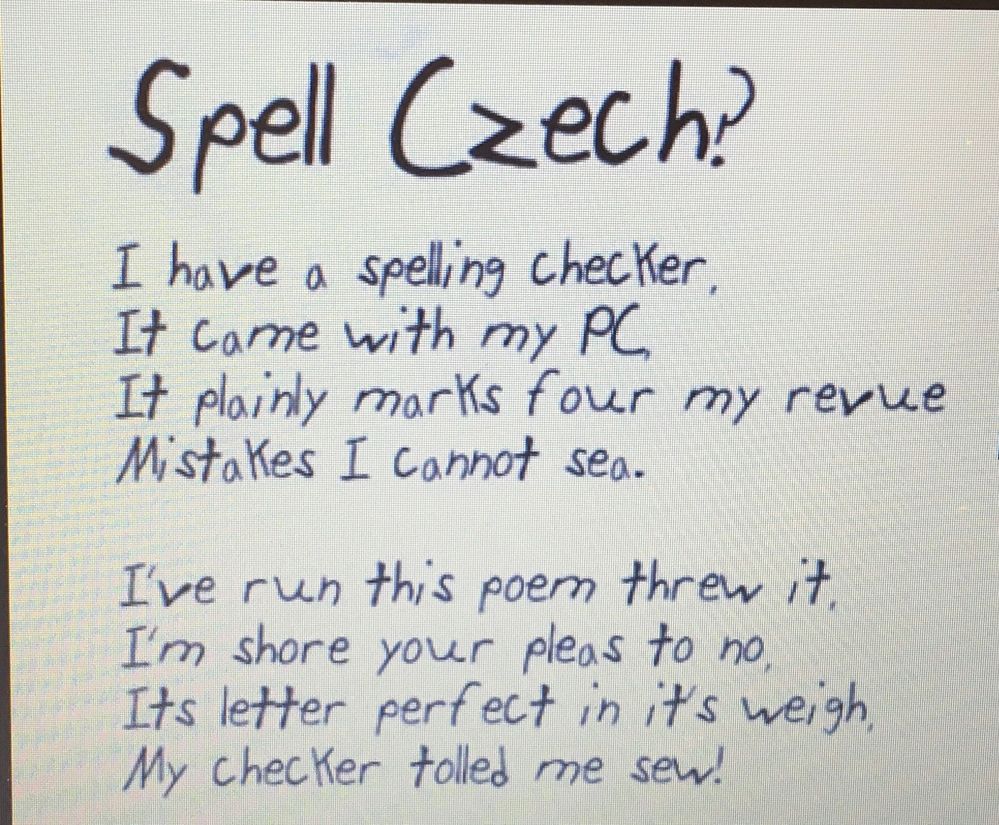 Spell Czech?
I have a spelling checker,
It came with my PC,
It plainly marks four my revue
Mistakes I cannot sea.
I've run this poem threw it,
I'm shore your pleas to no,
Its letter perfect in it's weigh,
My checker tolled me sew!